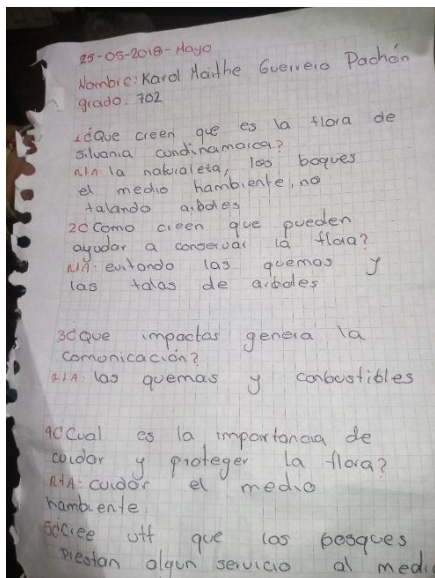 25-05-2018-Mayo
Nombre: Karol Maithe Guerrero Pachón
grado: 702
1¿Que creen que es la flora de
silvania cundinamarca?
R/A: la naturaleta, los boques
el medio hambiente, no
talando arboles
2¿Como creen que pueden
ayudar a conservar la flora?
R/A: evitando las quemas y
las talas de arboles
3¿que impactos genera la
comunicación?
R/A: las quemas y conbustibles
4¿Cual es la importancia de
cuidar y proteger la flora?
R/A: cuidar el medio
hambiente
5¿Cree utt que los bosques
prestan algun servicio al medio